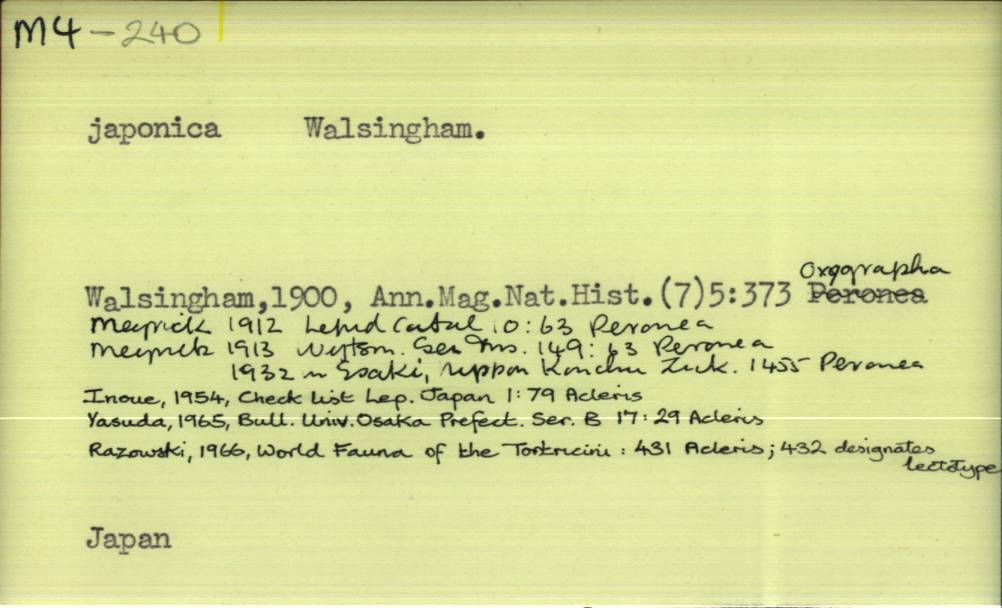 M4-240
japonica Walsingham.
Oxygrapha
Walsingham,1900, Ann.Mag.Nat.Hist.(7)5:373 Peronea
Meyrick 1912 Lepid Catal 10:63 Peronea
Meyrick 1913 Wytsm. Gen Ins. 149:63 Peronea
1932 in Esaki, Nippon Konchu Zuk. 1455 Peronea
Inoue, 1954, Check List Lep. Japan 1:79 Acleris
Yasuda, 1965, Bull. Univ. Osaka Prefect. Ser. B 17:29 Acleris
Razowski, 1966, World Fauna of the Tortricini : 431 Acleris; 432 designates
lectotype
Japan